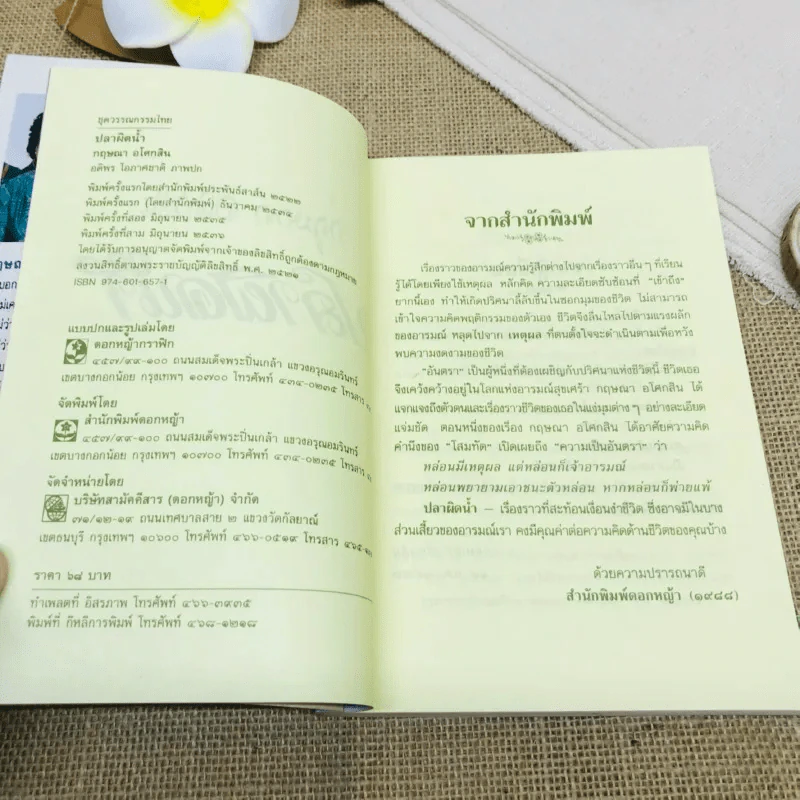 ชุดวรรณกรรมไทย
ปลาผิดน้ำ
กฤษณา อโศกสิน
อดิพร โอภาศชาติ ภาพปก
พิมพ์ครั้งแรกโดยสำนักพิมพ์ประพันธ์สาส์น ๒๕๒๒
พิมพ์ครั้งแรก (โดยสำนักพิมพ์) ธันวาคม ๒๕๓๔
พิมพ์ครั้งที่สอง มิถุนายน ๒๕๓๕
พิมพ์ครั้งที่สาม มิถุนายน ๒๕๓๖
โดยได้รับการอนุญาตจัดพิมพ์จากเจ้าของลิขสิทธิ์ถูกต้องตามกฎหมาย
สงวนลิขสิทธิ์ตามพระราชบัญญัติลิขสิทธิ์ พ.ศ. ๒๕๒๑
ISBN 974-601-657-1
แบบปกและรูปเล่มโดย
ดอกหญ้ากราฟิก
๔๕๗/๙๙-๑๐๐ ถนนสมเด็จพระปิ่นเกล้า แขวงอรุณอมรินทร์
เขตบางกอกน้อย กรุงเทพฯ ๑๐๗๐๐ โทรศัพท์ ๔๓๔-๐๒๓๕ โทรสาร
จัดพิมพ์โดย
สำนักพิมพ์ดอกหญ้า
๔๕๗/๙๙-๑๐๐ ถนนสมเด็จพระปิ่นเกล้า แขวงอรุณอมรินทร์
เขตบางกอกน้อย กรุงเทพฯ ๑๐๗๐๐ โทรศัพท์ ๔๓๔-๐๒๓๕ โทรสาร
จัดจำหน่ายโดย
บริษัทสามัคคีสาร (ดอกหญ้า) จำกัด
๗๑/๑๒-๑๙ ถนนเทศบาลสาย ๒ แขวงวัดกัลยาณ์
เขตธนบุรี กรุงเทพฯ ๑๐๖๐๐ โทรศัพท์ ๔๖๖-๐๕๑๙ โทรสาร
ราคา ๖๘ บาท
ทำเพลตที่ อิสรภาพ โทรศัพท์ ๔๖๖-๓๙๓๕
พิมพ์ที่ กิหลีการพิมพ์ โทรศัพท์ ๔๖๘-๑๒๑๘
จากสำนักพิมพ์
เรื่องราวของอารมณ์ความรู้สึกต่างไปจากเรื่องราวอื่น ๆ ที่เรียน
รู้ได้โดยเพียงใช้เหตุผล หลักคิด ความละเอียดซับซ้อนที่ "เข้าถึง"
ยากนี้เอง ทำให้เกิดปริศนาลี้ลับขึ้นในซอกมุมของชีวิต ไม่สามารถ
เข้าใจความคิดพฤติกรรมของตัวเอง ชีวิตจึงลื่นไหลไปตามแรงผลัก
ของอารมณ์ หลุดไปจาก เหตุผล ที่ตนตั้งใจจะดำเนินตามเพื่อหวัง
พบความงดงามของชีวิต
"อันตรา" เป็นผู้หนึ่งที่ต้องเผชิญกับปริศนาแห่งชีวิตนี้ ชีวิตเธอ
จึงเคว้งคว้างอยู่ในโลกแห่งอารมณ์สุขเศร้า กฤษณา อโศกสิน ได้
แจกแจงถึงตัวตนและเรื่องราวชีวิตของเธอในแง่มุมต่าง ๆ อย่างละเอียด
แจ่มชัด ตอนหนึ่งของเรื่อง กฤษณา อโศกสิน ได้อาศัยความคิด
คำนึงของ "โสมทัต" เปิดเผยถึง "ความเป็นอันตรา" ว่า
หล่อนมีเหตุผล แต่หล่อนก็เจ้าอารมณ์
หล่อนพยายามเอาชนะตัวหล่อน หากหล่อนก็พ่ายแพ้
ปลาผิดน้ำ – เรื่องราวที่สะท้อนเงื่อนงำชีวิต ซึ่งอาจมีในบาง
ส่วนเสี้ยวของอารมณ์เรา คงมีคุณค่าต่อความคิดด้านชีวิตของคุณบ้าง
ด้วยความปรารถนาดี
สำนักพิมพ์ดอกหญ้า (๑๙๘๘)